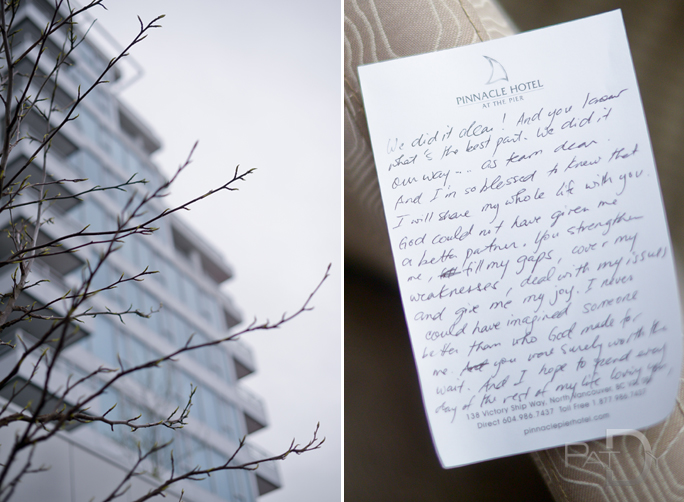 PINNACLE HOTEL
AT THE PIER
We did it dear! And you know
what's the best part. We did it
our way... as team dear.
And I'm so blessed to know that
I will share my whole life with you.
God could not have given me
a better partner. You strengthen
me, fill my gaps, cover my
weaknesses, deal with my issues
and give me my joy. I never
could have imagined someone
better than who God made for
me. you were surely worth the
wait. And I hope to spend every
day of the rest of my life loving you,
138 Victory Ship Way, North Vancouver, BC
Direct 604.986.7437 Toll Free 1.877.986.7437
pinnaclepierhotel.com